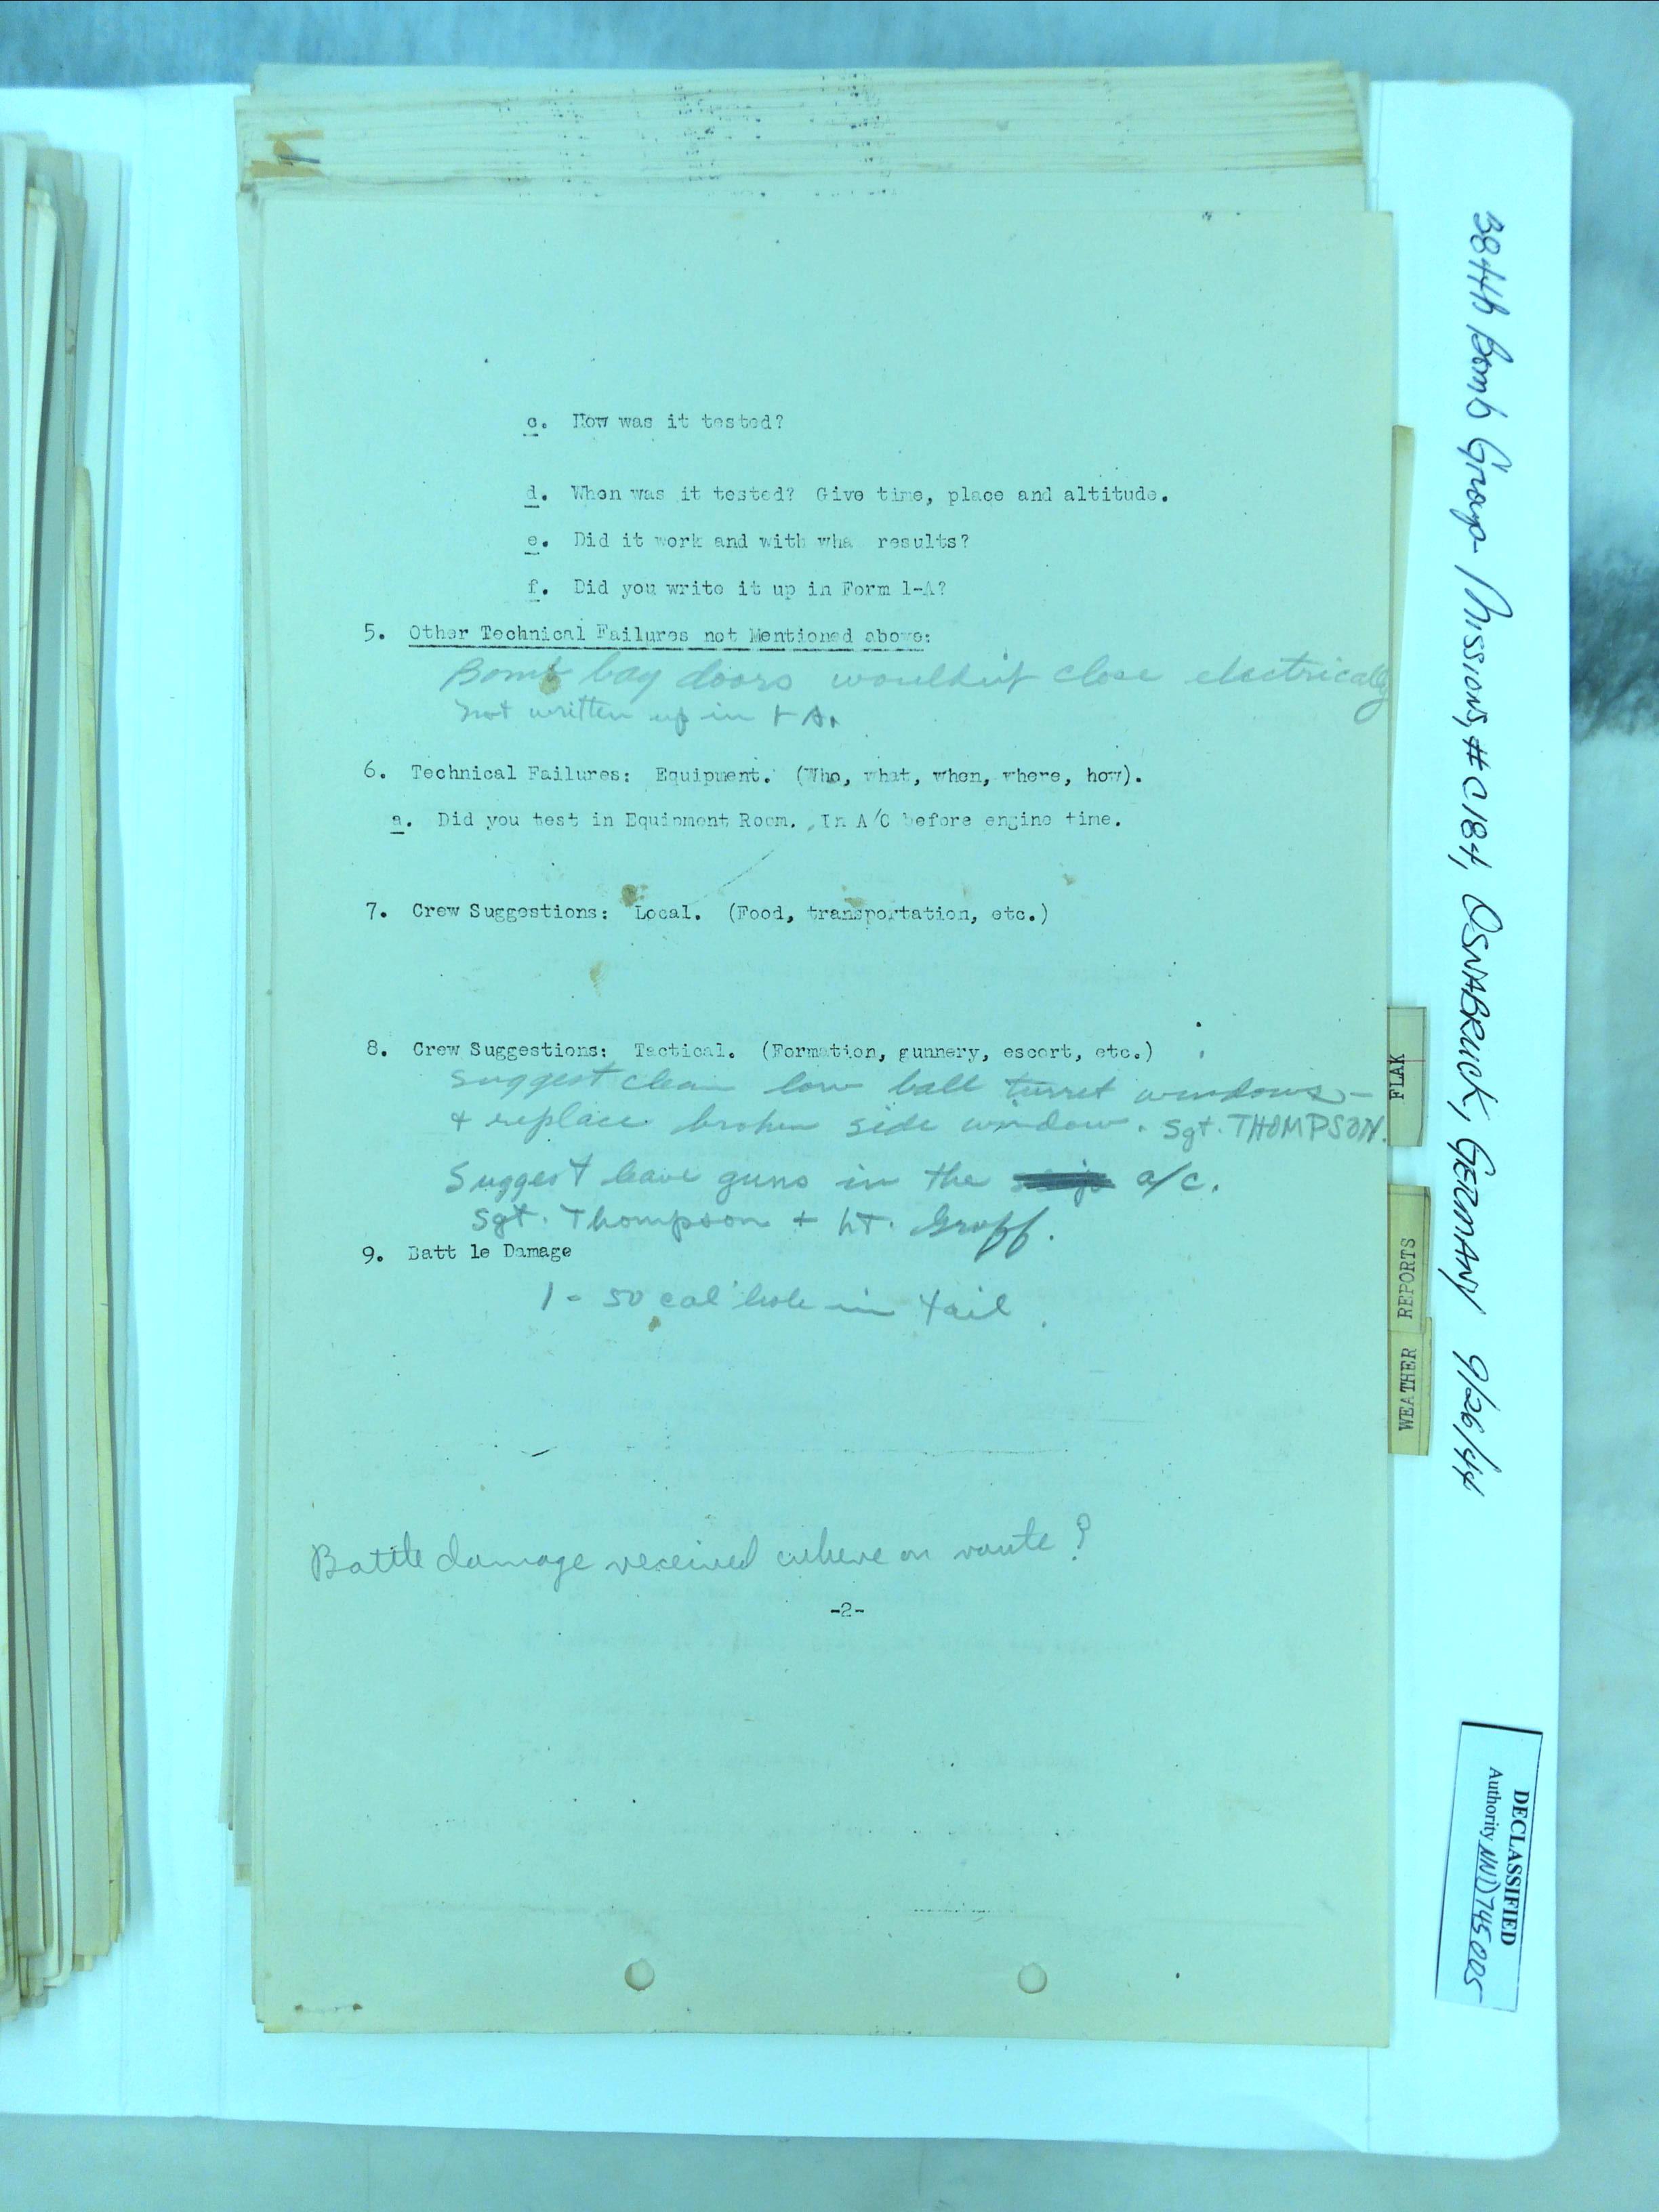 c. How was it tested?
d. When was it tested? Give time, place and altitude.
e. Did it work and with wha results?
f. Did you write it up in Form 1-A?
5. Other Technical Failures not Mentioned above:
Bomb bay doors wouldn't close electrically
not written up in 1-A.
6. Technical Failures: Equipment. (Who, what, when, where, how).
a. Did you test in Equipment Room. In A/C before engine time.
7. Crew Suggestions: Local. (Food, transportation, etc.)
8. Crew Suggestions: Tactical. (Formation, gunnery, escort, etc.)
Suggest clean low ball turret windows -
& replace broken side window. Sgt. THOMPSON.
Suggest leave guns in the a/c.
Sgt. Thompson + Lt. Groff.
9. Batt le Damage
1 - 50 cal hole in tail.
Battle damage received where on route?
-2-
FLAK
WEATHER REPORTS
384th Bomb Group Missions, #C184, OSNABRUCK, GERMANY 9/26/44
DECLASSIFIED
Authority NND745005